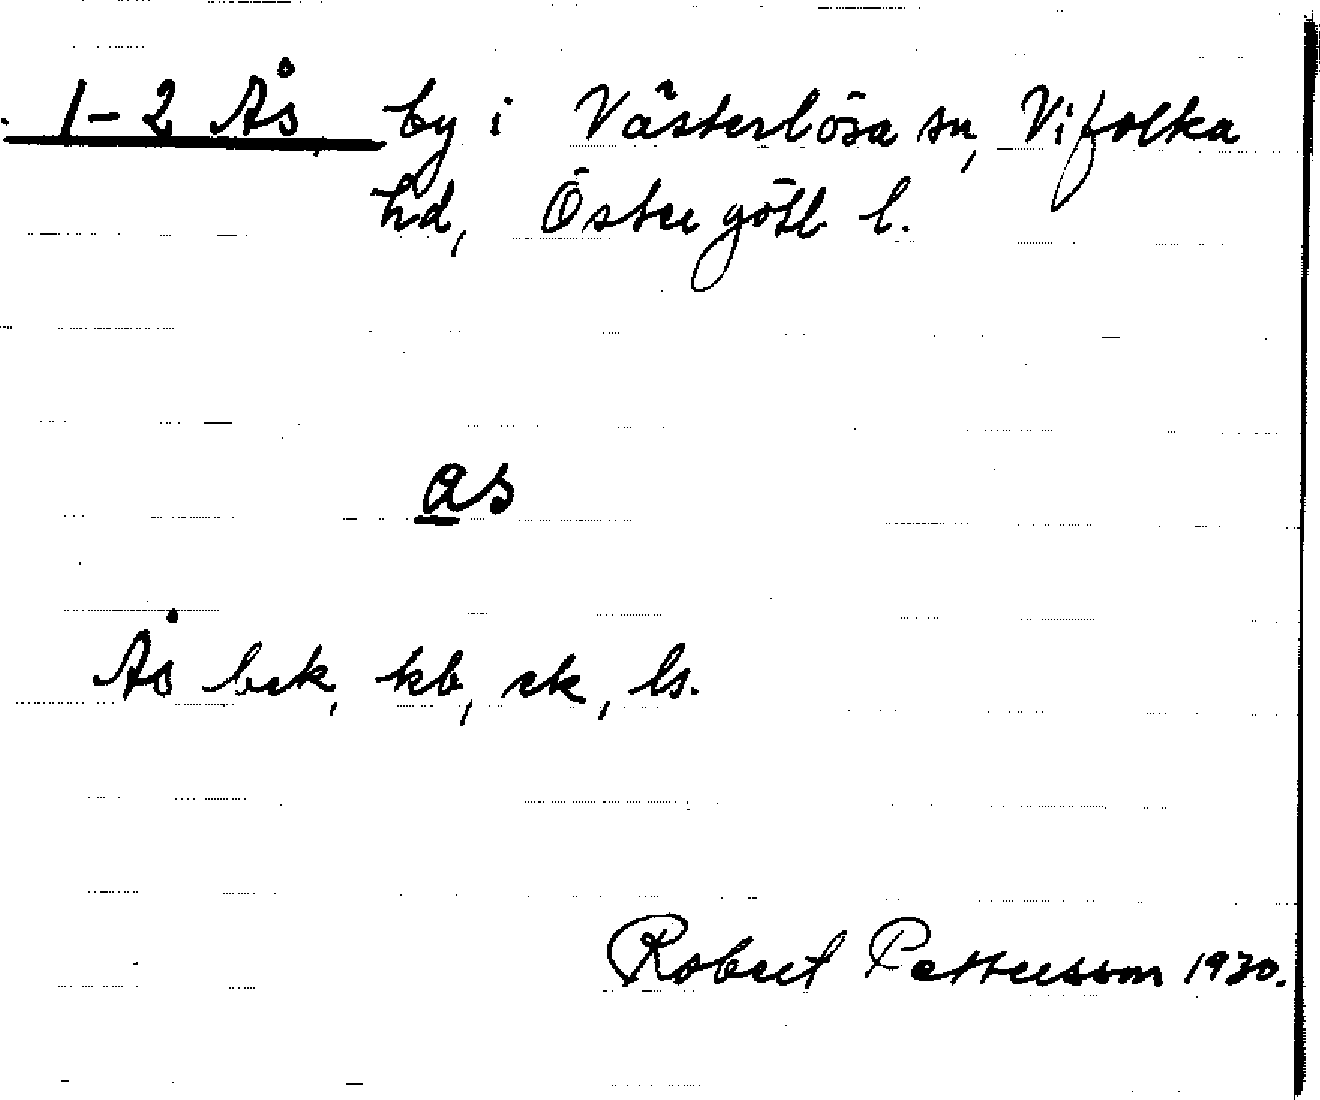 1-2 Ås by i Västerlösa sn, Vifolka
hd, Östergötl l.
as
Ås bek, kb, ek, ls.
Robert Pettersson 1930.